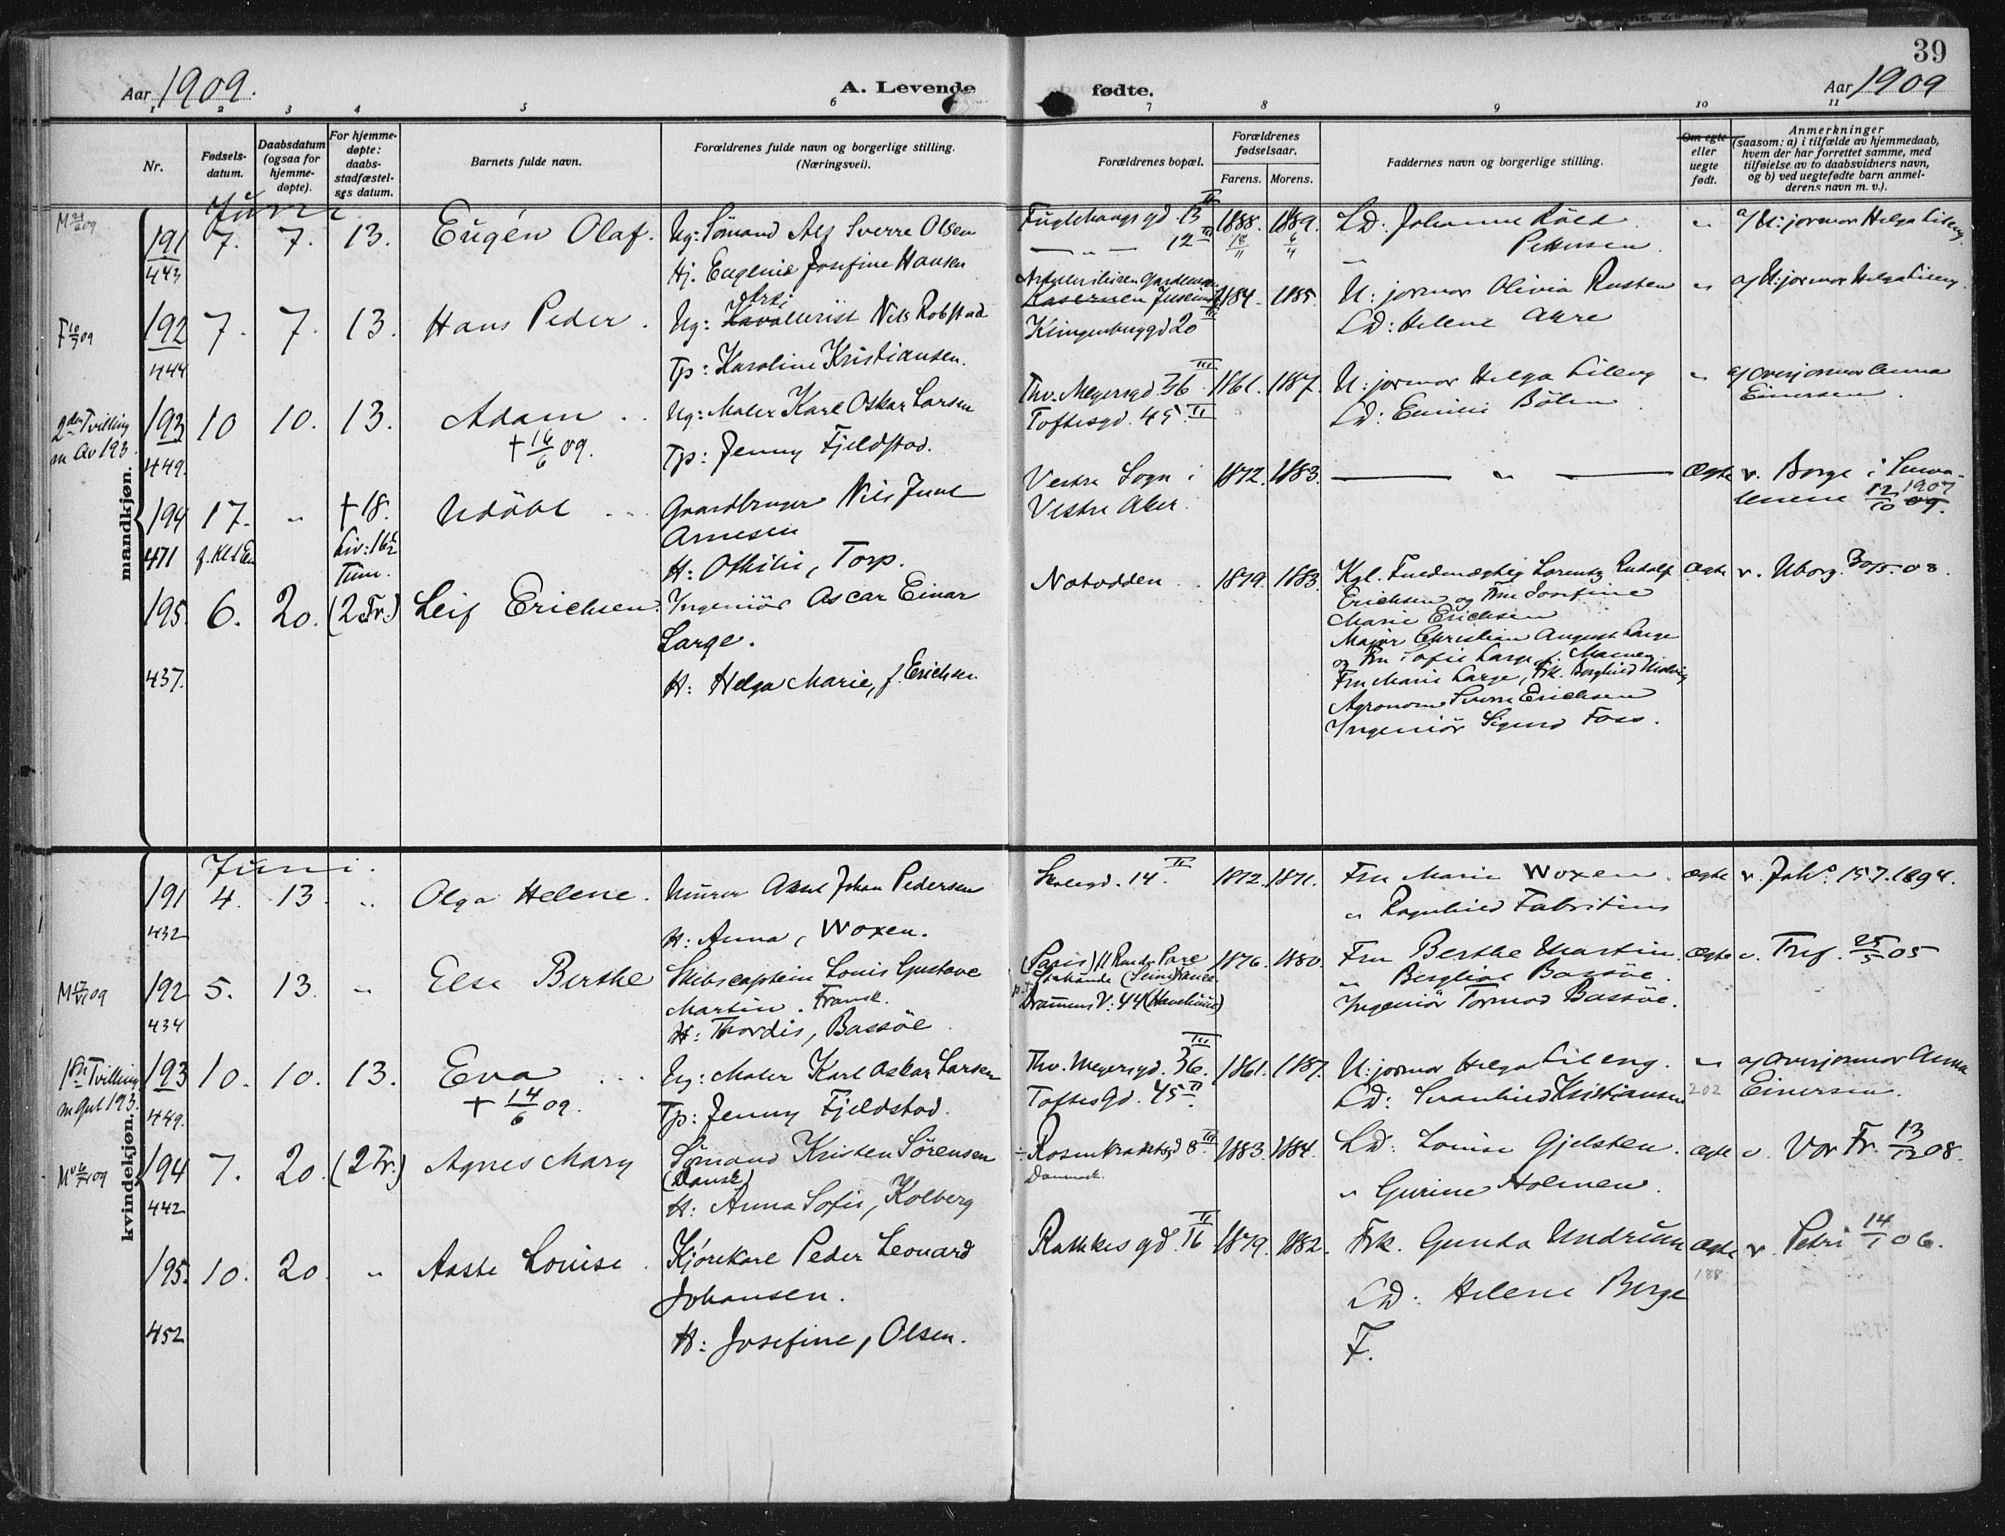 39
Aar 1909.
A. Levende
fødte.
Aar 1909
1 2 3 4 5 6 7 8 9 10 11
Nr.
Fødsels-
datum.
Daabsdatum
(ogsaa for
hjemme-
døpte).
For hjemme-
døpte:
daabs-
stadfæstel-
ses datum.
Barnets fulde navn.
Forældrenes fulde navn og borgerlige stilling.
(Næringsvei).
Forældrenes bopæl.
Forældrenes
fødselsaar.
Farens. Morens.
Faddernes navn og borgerlige stilling.
Om egte
eller
uegte
født.
Anmerkninger
(saasom: a) i tilfælde av hjemmedaab,
hvem der har forrettet samme, med
tilføielse av to daabsvidners navn,
og b) ved uegtefødte barn anmel-
derens navn m. v.).
mandkjøn.
Juni
191 7. 7. 13. Eugén Olaf. Ug: Sømand Alf Sverre Olsen
443
Hj. Eugenie Josefine Hansen
Fuglehaugs gd 13 II
— „ — 12 II
1888. 1889.
18/11 6/4
Ld: Johanne
Pettersen
„
a/ U: jormor Helga Lileng.
F 10/7 09
192 7. 7. 13. Hans Peder. Ug: Kavallerist Nils Robstad
444
Tp: Karoline Kristiansen.
Klingenberggd 20 II
1884. 1885.
U: jormor Olivia Rusten
Ld: Helene Aure
„
a/ U: jormor Helga Lileng.
2den Tvilling
m Av 193
193 10 10. 13. Adam
449.
† 16/6 09.
Ug: Maler Karl Oskar Larsen
Tp: Jenny Fjeldstad.
Thv. Meyersgd 36 III
Toftesgd. 45. II
1861. 1887.
U: jormor Helga Lileng
Ld: Emilie Bölen
„
a/ Overjormor Anna
Einersen.
194 17. „ † 18. Udöbt
471
Liv: 16½
Tim.
Gaardbruger Nils Juul
Arnesen
H: Othilie, Torp.
Vestre Sogn i
Vestre Aker
1872. 1883.
— „ —
Ægte
v. Borge i
12/10 1907
195. 6. 20. (2 Fr.) Leif Erichsen. Ingeniör Oscar Einar
437.
Large.
H: Helga Marie, f. Erichsen
Notodden
1879. 1883.
Kgl. Fuldmægtig Lorentz Rudolf
Erichsen og Fru Josefine
Marie Erichsen
Major Christian August Large
og Fru Sofie Large f.
Fru Marie Large, Frk. Borghild
Agronom Sverre Erichsen
Ingeniör Sigurd Foss.
Ægte
v. Uborg. 30/5. 08.
kvindekjøn.
Juni.
191 4. 13. „ Olga Helene. Murer Axel Johan Pedersen
432
H: Anna, Woxen.
14. II
1872. 1871.
Fru Marie Woxen.
„ Ragnhild Fabritius
Ægte
v. Joh.s 15/7. 1894.
M 17/VI 09
192 5. 13. „ Else Berthe Skibscaptein Louis Gustave
434
Martin. Fransk.
H: Thordis, Bassöe
(Paris) 11 Rue du Parc
Drammens V: 44 (Havehuset)
1876. 1880.
Fru Berthe Martin.
„ Bergliot Bassöe.
Ingeniör Tormod Bassöe.
Ægte
v. Tref. 25/5 05
1ste Tvilling
m Gut 193.
193 10. 10. 13. Eva
449.
† 14/6 09.
Ug: Maler Karl Oskar Larsen
Tp: Jenny Fjeldstad.
Thv. Meyersgd. 36. III
Toftes Gd. 45 II
1861. 1887.
U: jormor Helga Lileng.
Ld: Svanhild Kristiansen
„
202
a/ Overjormor Anna
Einersen.
194 7. 20. (2 Fr.) Agnes Mary Sømand Kristen Sörensen
442
(Dansk)
H: Anna Sofie, Kolberg
Rosenkrantzgd 8 III
Danmark.
1883. 1884.
Ld: Louise Gjelsten
„ Gurine Holmen.
Ægte
v. Vor Fr. 13/12 08.
195. 10. 20. „ Aaste Louise. Kjörekarl Peder Leonard
452
Johansen.
H: Josefine, Olsen.
Rathkes gd. 16 II
1879. 1882.
Frk. Gunda Undrum
Ld: Helene Berge
F.
Ægte
188
v. Petri 14/1 06.